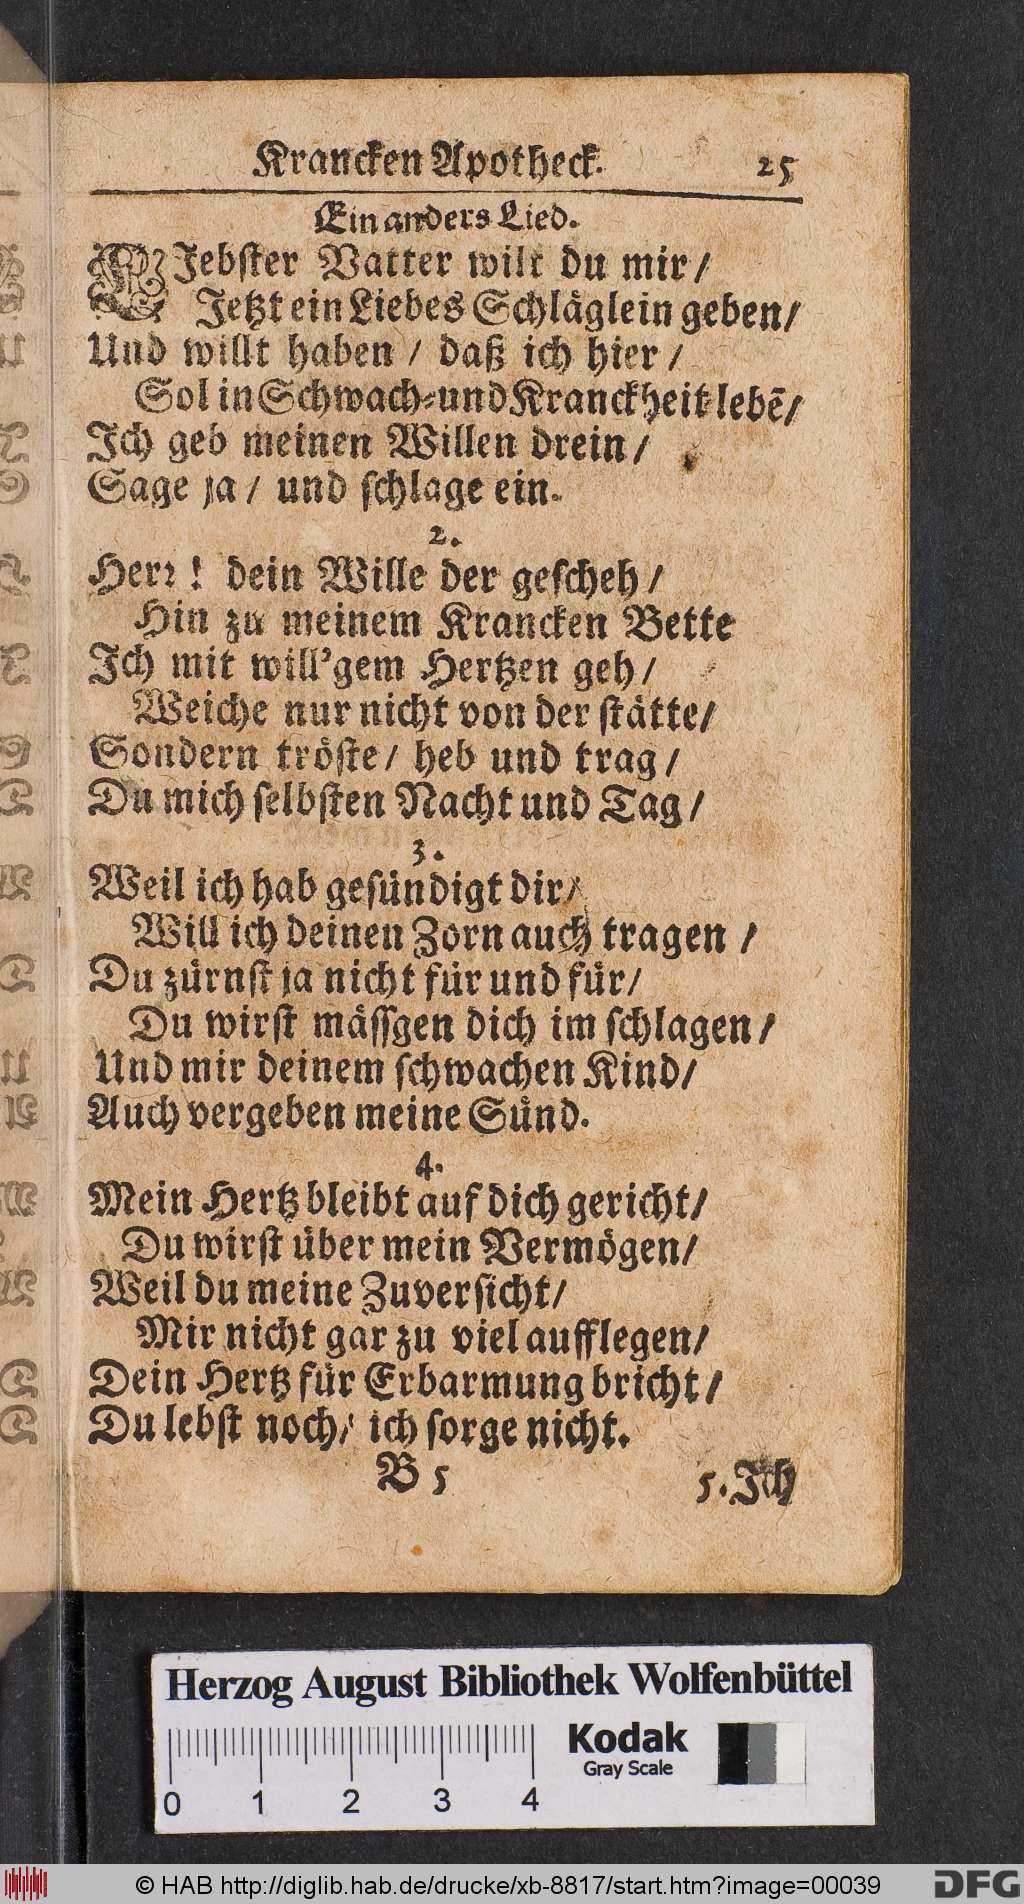 Krancken Apotheck. 25
Ein anders Lied.
LJebster Vatter wilt du mir /
Jetzt ein Liebes Schläglein geben /
Und willt haben / daß ich hier /
Sol in Schwach- und Kranckheit lebē /
Ich geb meinen Willen drein /
Sage ja / und schlage ein.
2.
Herr ! dein Wille der gescheh /
Hin zu meinem Krancken Bette
Ich mit will'gem Hertzen geh /
Weiche nur nicht von der stätte /
Sondern tröste / heb und trag /
Du mich selbsten Nacht und Tag /
3.
Weil ich hab gesündigt dir /
Will ich deinen Zorn auch tragen /
Du zürnst ja nicht für und für /
Du wirst mässgen dich im schlagen /
Und mir deinem schwachen Kind /
Auch vergeben meine Sünd.
4.
Mein Hertz bleibt auf dich gericht /
Du wirst über mein Vermögen /
Weil du meine Zuversicht /
Mir nicht gar zu viel aufflegen /
Dein Hertz für Erbarmung bricht /
Du lebst noch / ich sorge nicht.
B 5 5. Ich
Herzog August Bibliothek Wolfenbüttel
Kodak
Gray Scale
0 1 2 3 4
© HAB http://diglib.hab.de/drucke/xb-8817/start.htm?image=00039
DFG